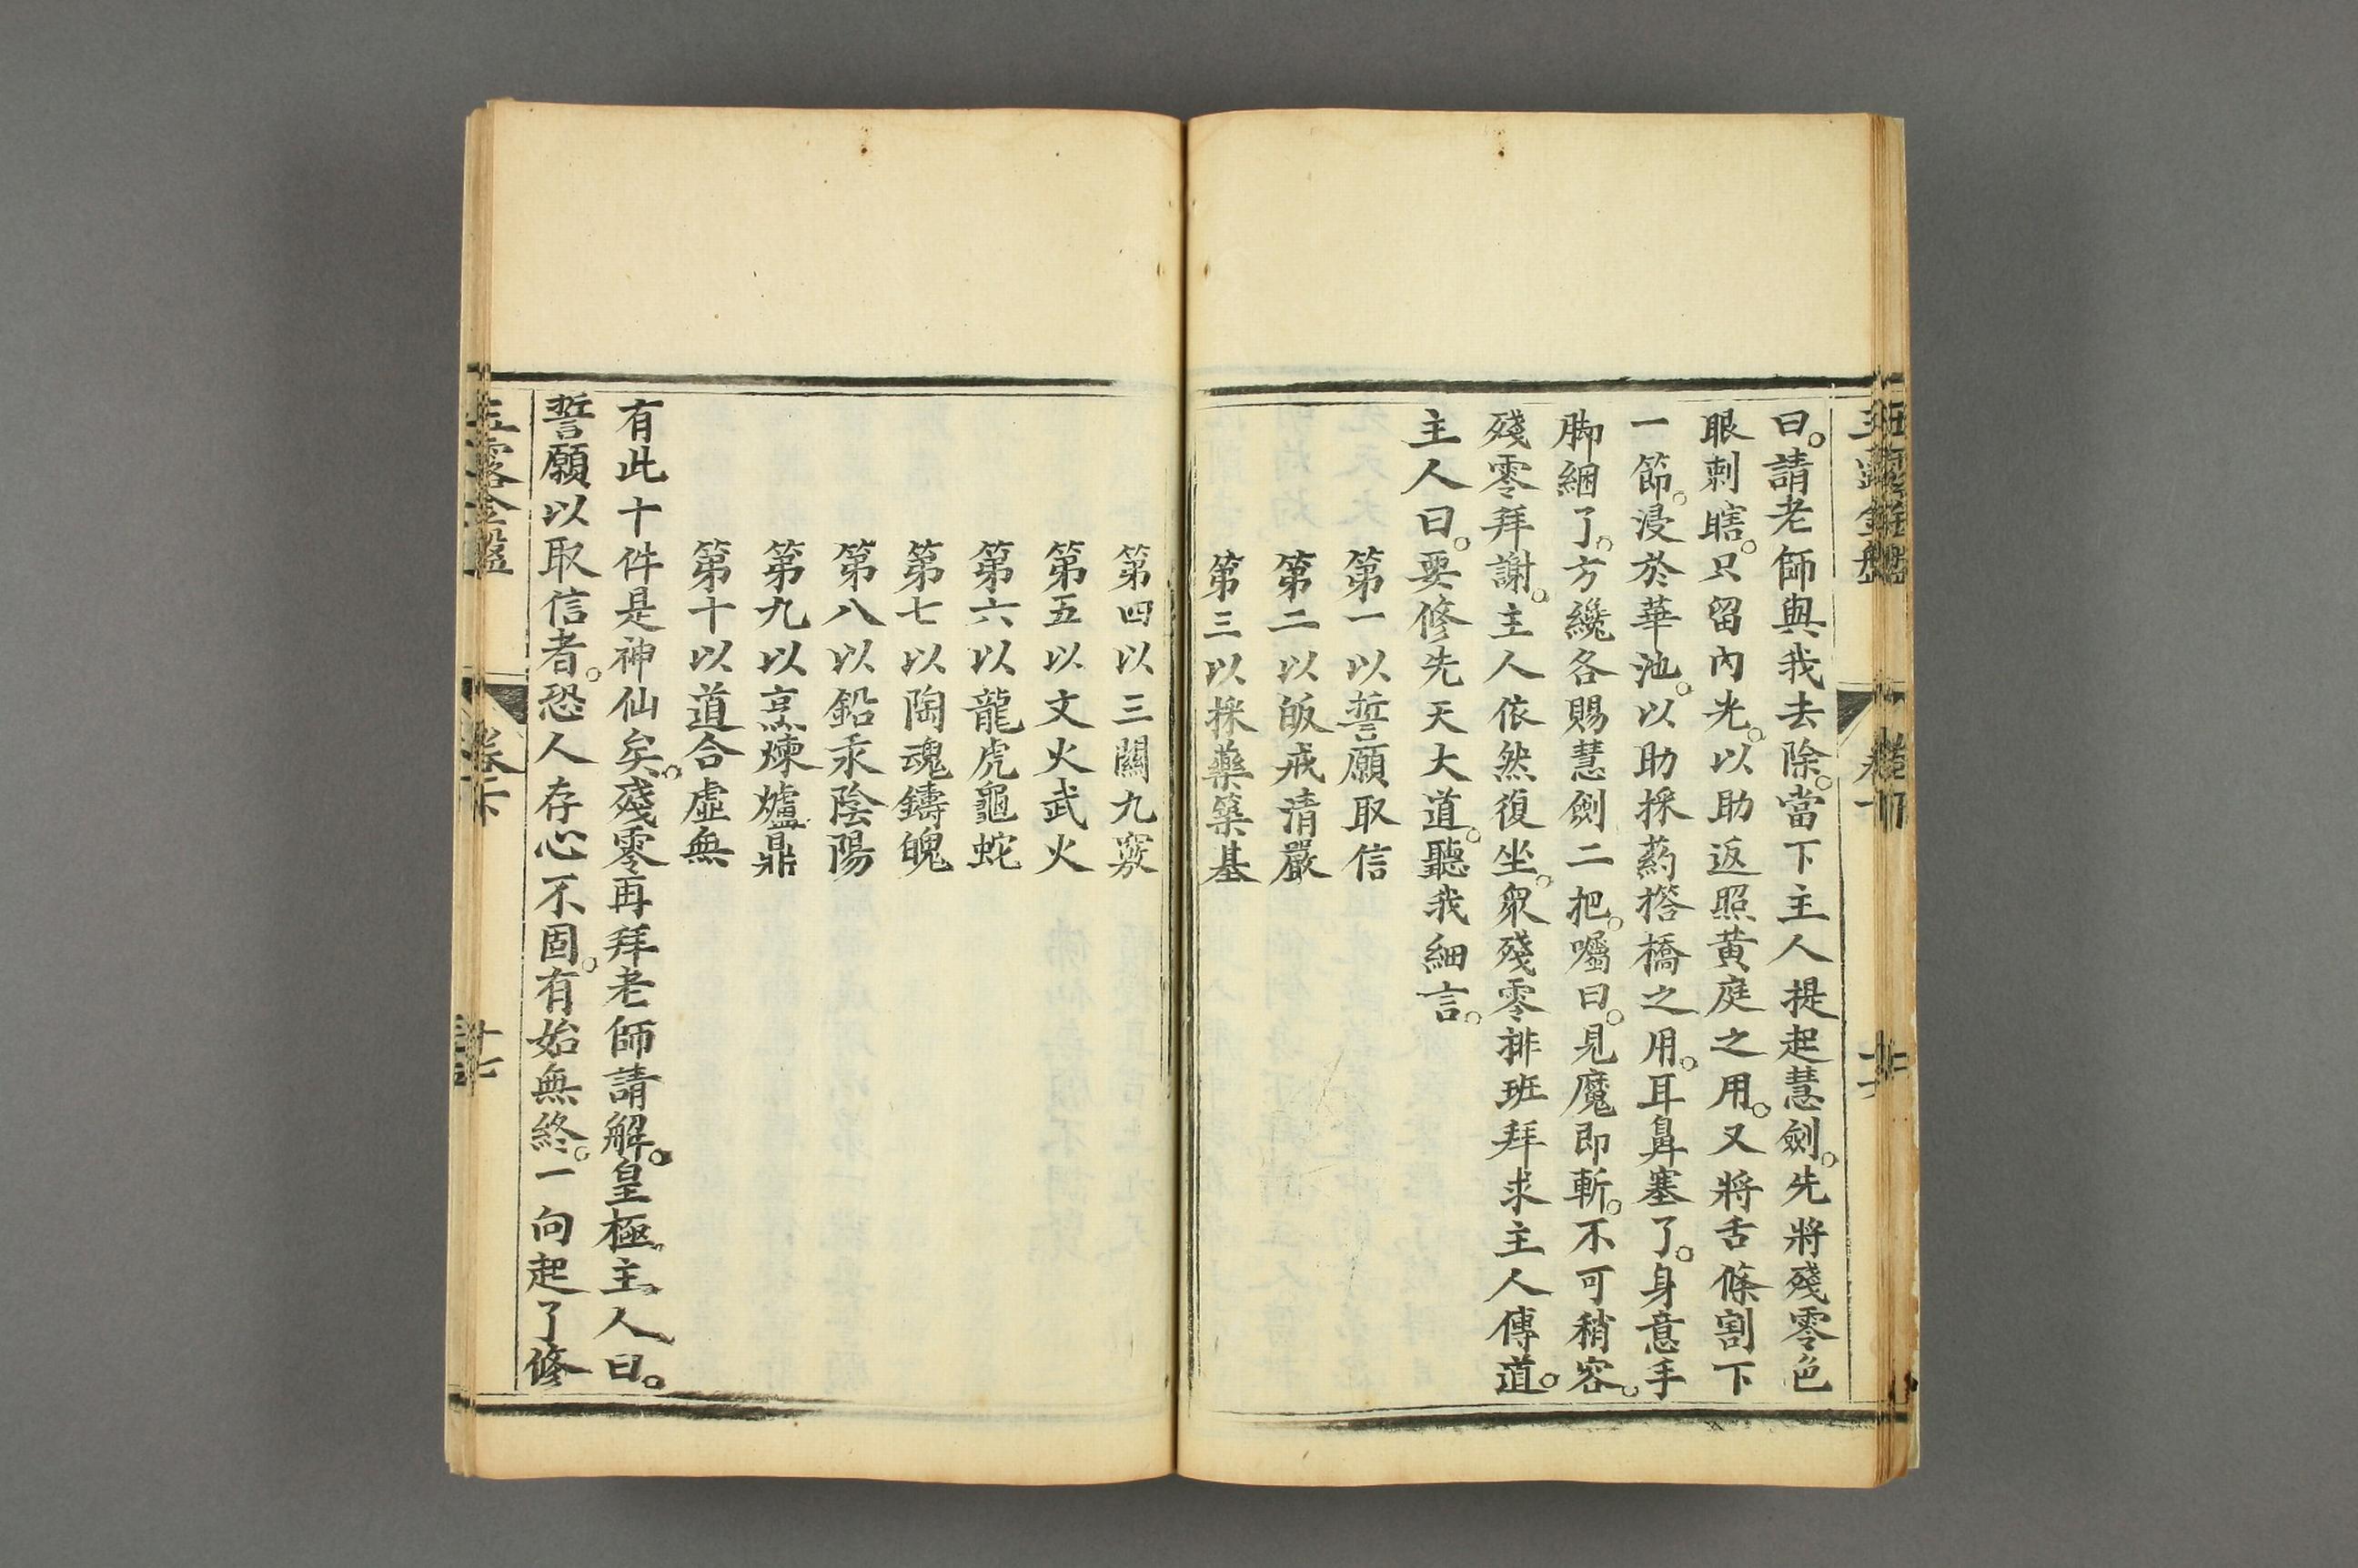 曰。請老師與我去除。當下主人提起慧劍。先將殘零色
眼刺瞎。只留內光。以助返照黃庭之用。又將舌條割下
一節。浸於華池。以助採药搭橋之用。耳鼻塞了。身意手
脚綑了。方纔各賜慧劍二把。囑曰。見魔即斬。不可稍容。
殘零拜謝。主人依然復坐。衆殘零排班拜求主人傳道。
主人曰。要修先天大道。聽我細言。
第一以誓願取信
第二以皈戒清嚴
第三以採藥築基
第四以三關九竅
第五以文火武火
第六以龍虎龜蛇
第七以陶魂鑄魄
第八以鉛汞陰陽
第九以烹煉爐鼎
第十以道合虛無
有此十件是神仙矣。殘零再拜老師請解。皇極主人曰。
誓願以取信者。恐人存心不固。有始無終。一向起了修
卷下
十七